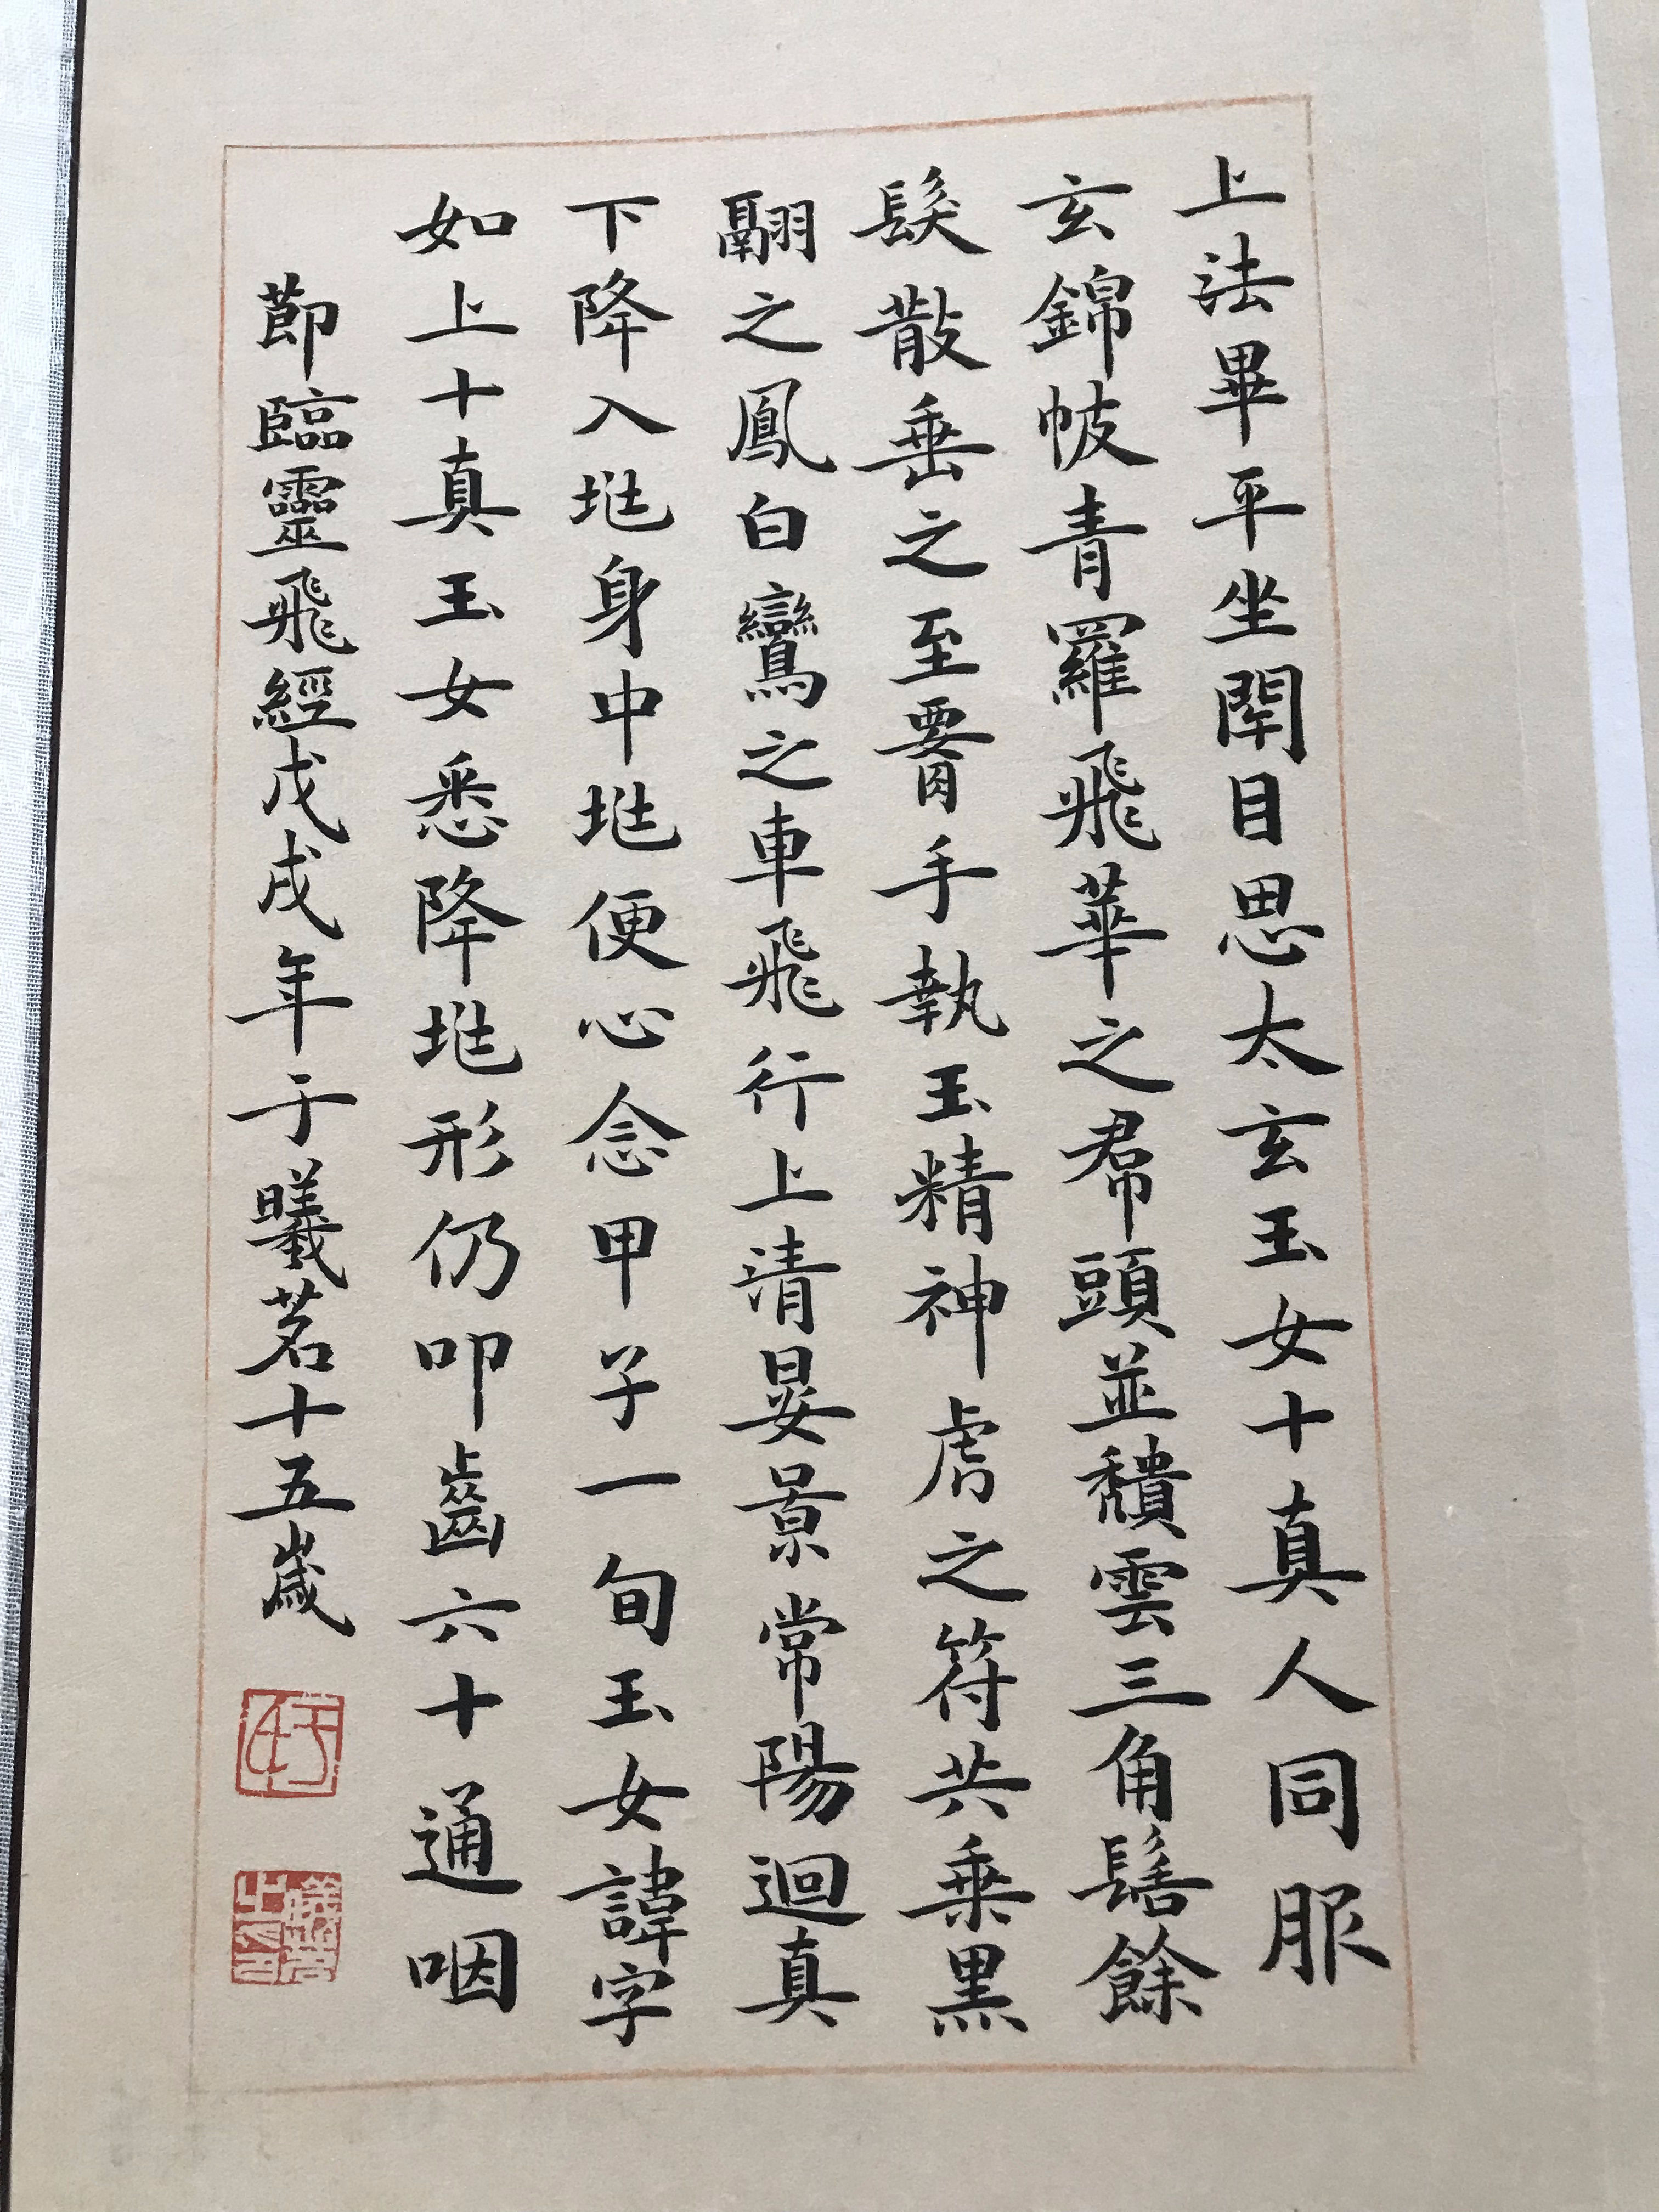 上法畢平坐閇目思太玄玉女十真人同服
玄錦帔青羅飛華之帬頭並穨雲三角髻餘
髮散垂之至䙅手執玉精神虎之符共乗黑
翮之鳳白鸞之車飛行上清晏景常陽迴真
下降入埊身中埊便心念甲子一旬玉女諱字
如上十真玉女悉降埊形仍叩齒六十通咽
莭臨靈飛經戊戌年于曦茗十五歲